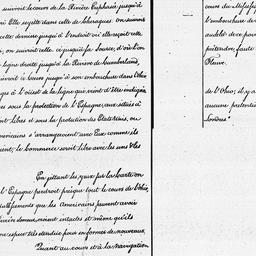 suivroit le cours de la Rivière Euphasée jusqu'à
où Elle se jette dans celle de Cheroquées. On suivroit
cette derniere jusqu'à l'endroit où elle reçoit celle
on suivroit celle ci jusqu'à sa Source, d'où l'on
ligne droite jusqu'à la Riviere de Cumberland,
suivroit le cours jusqu'à son embouchure dans l'Ohio
à l'ouest de la ligne qui vient d'être indiquée
sous la protection de l'Espagne, ceux situés à
libres et sous la protection des Etats Unis, ou
s'arrangeroient avec Eux comme ils
le Commerce seroit libre avec les uns et les
En jettant les yeux sur la Carte on
l'Espagne perdroit presque tout le cours de l'Ohio,
que les Américains peuvent avoir
intacts et même qu'ils
espace très étendu pour en former de nouveaux.
Quant au cours et à la navigation
cours de
l'embouchure de
au delà de ce
prétendre, faute
Fleuve.
de l'Ohio, il y a
aucune prétention
Londres"